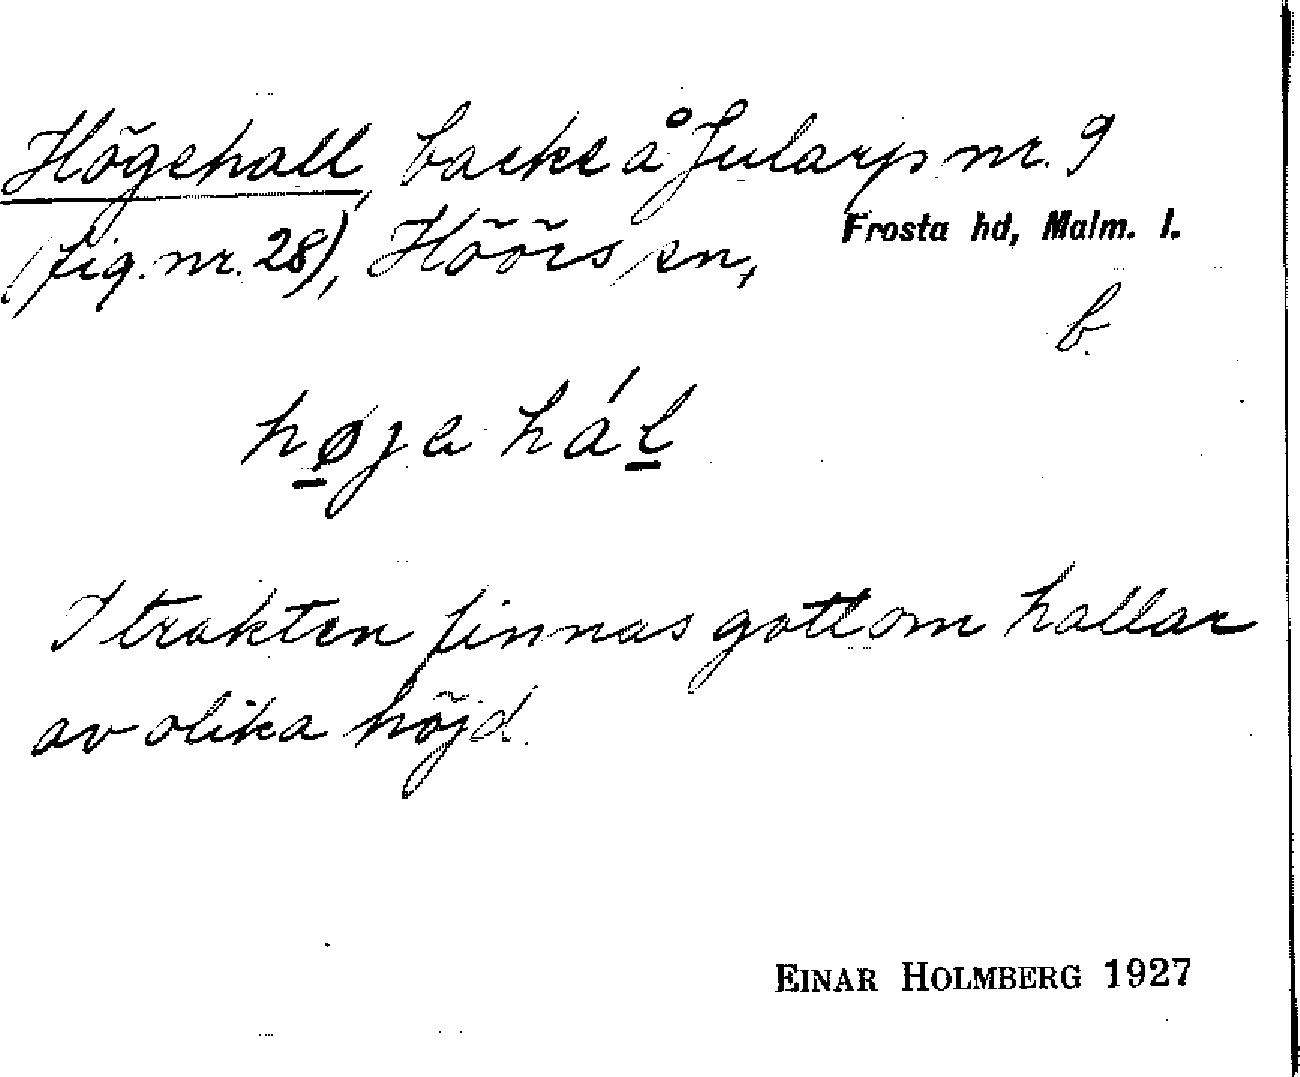 Högehall, backe å Jularp nr. 9
(fig. nr. 28), Höörs sn, Frosta hd, Malm. l.
b.
høja hál
I trakten finnas gott om hallar
av olika höjd.
EINAR HOLMBERG 1927